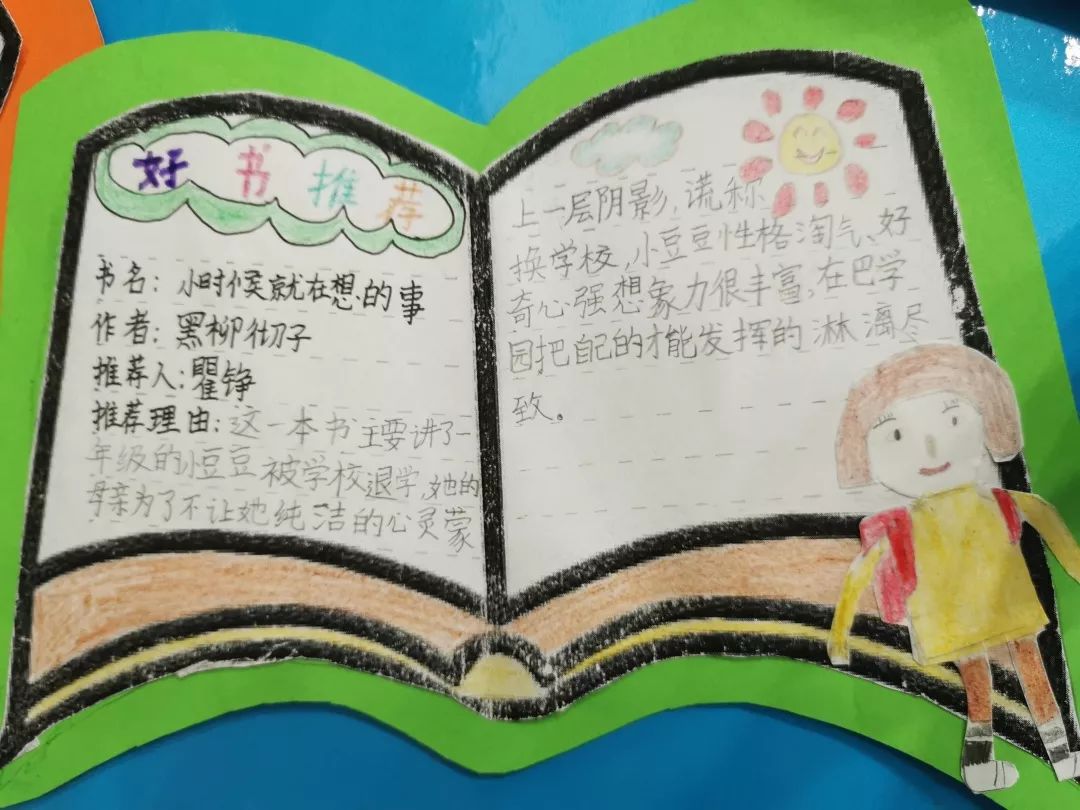 好书推荐
书名：小时候就在想的事
作者：黑柳彻子
推荐人：瞿铮
推荐理由：这一本书主要讲了一
年级的小豆豆被学校退学，她的
母亲为了不让她纯洁的心灵蒙
上一层阴影，谎称
换学校，小豆豆性格淘气、好
奇心强想象力很丰富，在巴学
园把自己的才能发挥的淋漓尽
致。